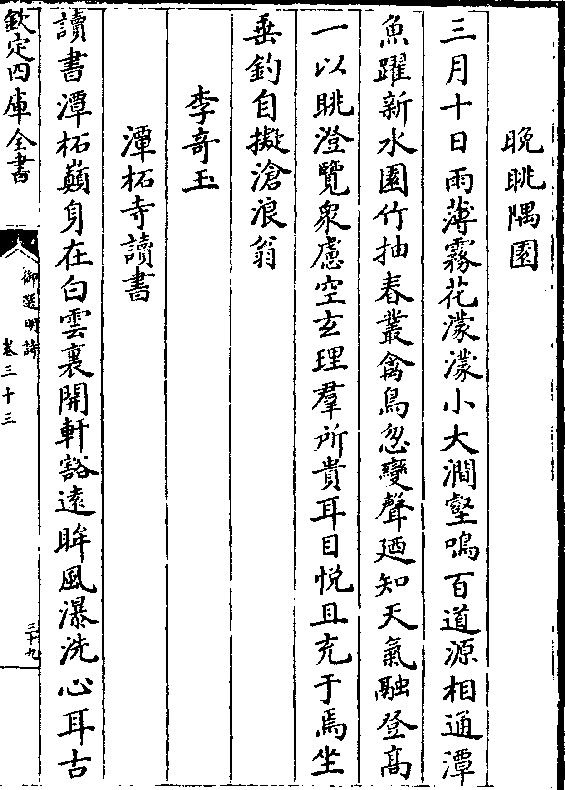 晚眺隅園
三月十日雨薄霧花濛濛小大澗壑鳴百道源相通潭
魚躍新水園竹抽春叢禽鳥忽變聲廼知天氣融登高
一以眺澄覽衆慮空玄理羣所貴耳目悅且充于焉坐
垂釣自擬滄浪翁
李奇玉
潭柘寺讀書
讀書潭柘巔身在白雲裏開軒豁遠眸風瀑洗心耳古
欽定四庫全書
御選明詩
卷三十三
三十九